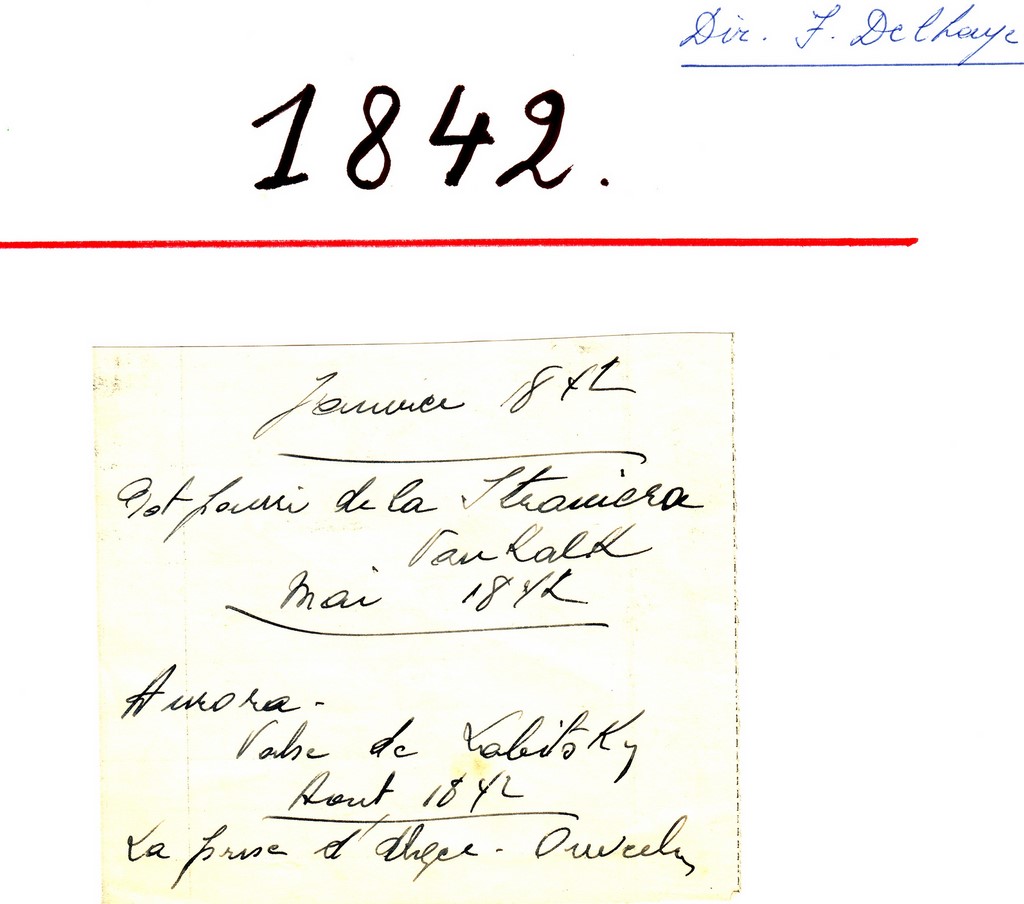 Dir. F. Delhaye
1842.
Janvier 1842
Pot pourri de la Straniera
Van Kalk
Mai 1842
Aurora -
Valse de Labitsky
Aout 1842
La prise d'Alger -